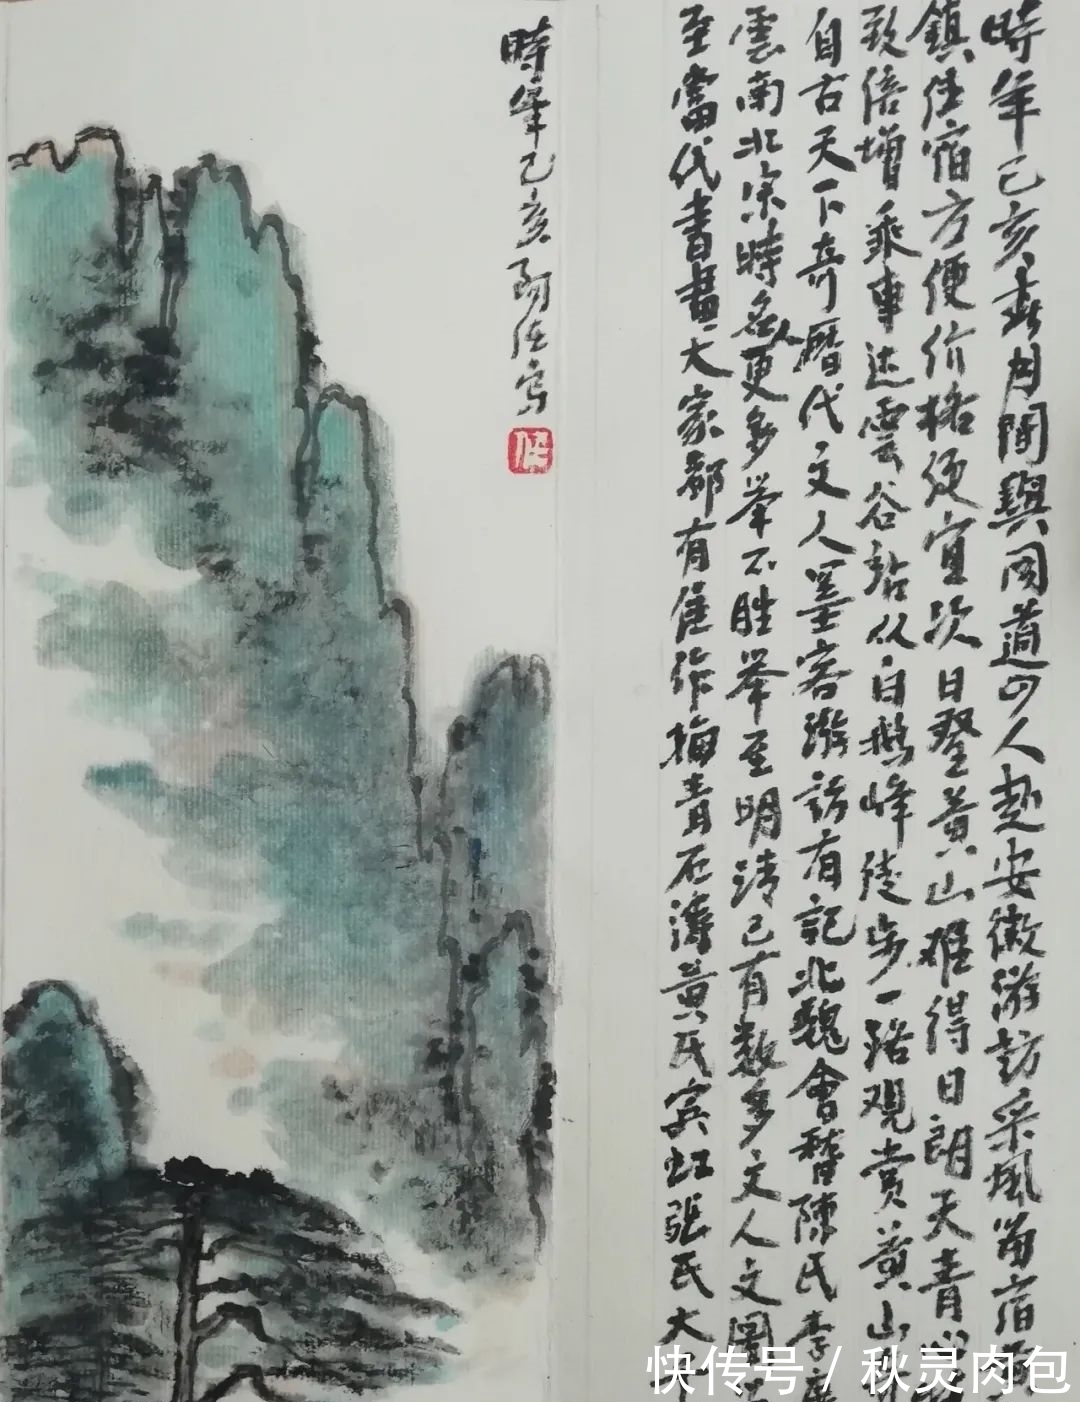 時年己亥春月間與同道四人赴安徽游訪采風留宿
鎮住宿方便价格便宜次日登黄山难得日朗天青心
致倍增乘車达雲谷站从白鹅峰徒步一路观赏黄山
自古天下奇曆代文人墨客游訪有記北魏會稽陳氏李
雲南北宋時名人更多举不胜举至明清已有数多文人文圖
至當代書畫大家都有佳作梅青石濤黄氏宾虹張氏大千
時年己亥阿佐写
佐
快传号/秋灵肉包